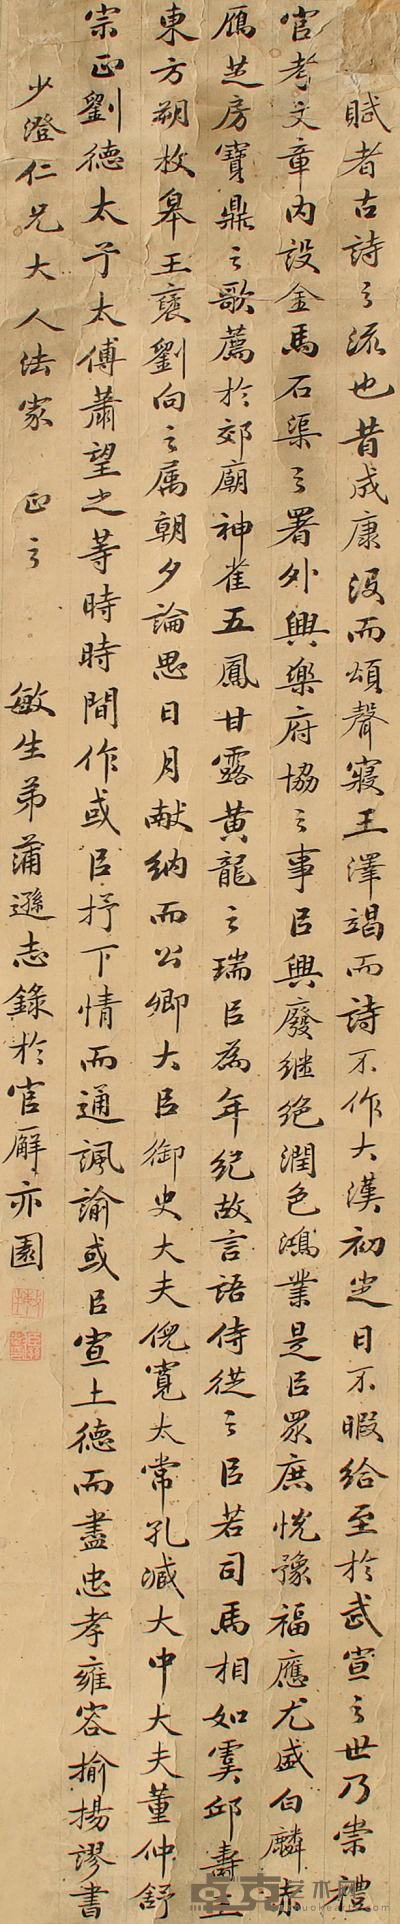 賦者古詩之流也昔成康沒而頌聲寢王澤竭而詩不作大漢初定日不暇給至於武宣之世乃崇禮
官考文章内設金馬石渠之署外興樂府協之事㠯興廢继绝潤色鴻業是㠯眾庶悦豫福應尤盛白麟赤
鴈芝房寶鼎之歌薦於郊廟神雀五鳳甘露黄龍之瑞㠯為年紀故言語侍從之臣若司馬相如虞邱壽王
東方朔枚皋王襃劉向之属朝夕論思日月献納而公卿大臣御史大夫倪寛太常孔臧大中大夫董仲舒
宗正劉德太子太傅蕭望之等時時間作或㠯抒下情而通諷諭或㠯宣上德而盡忠孝雍容揄揚謬書
少澄仁兄大人法家 正之 敏生弟蒲遜志錄於官廨亦園
卓克艺术网